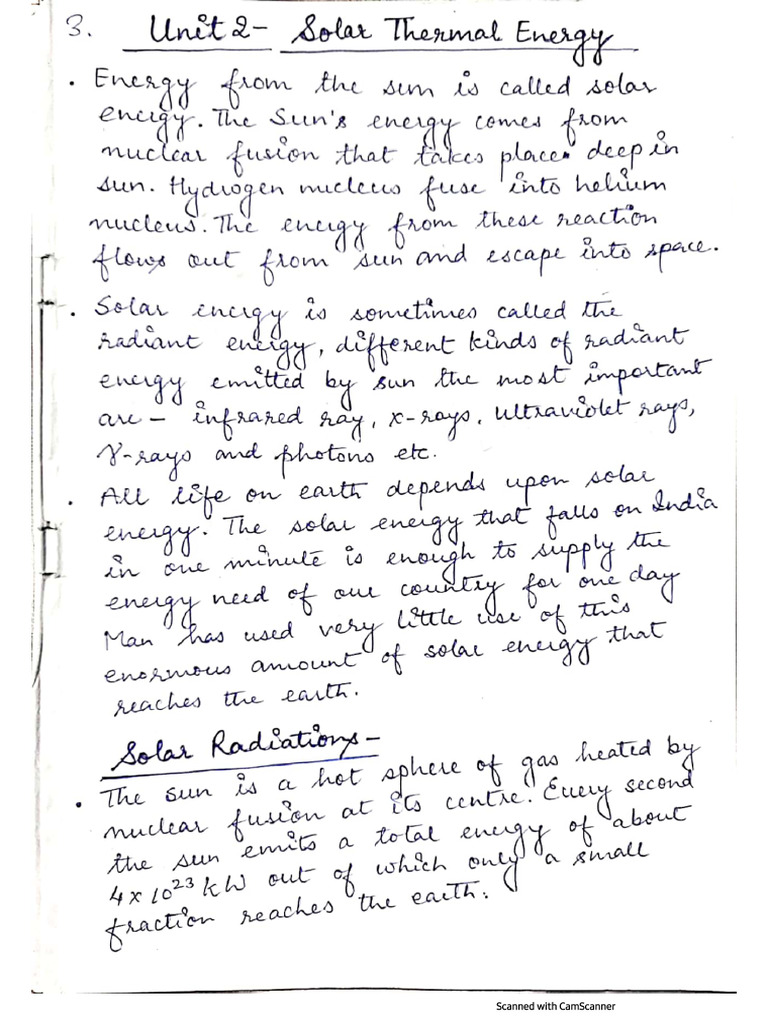 3. Unit 2- Solar Thermal Energy
• Energy from the sun is called solar
energy. The Sun's energy comes from
nuclear fusion that takes place deep in
sun. Hydrogen nucleus fuse into helium
nucleus. The energy from these reaction
flows out from sun and escape into space.
• Solar energy is sometimes called the
radiant energy, different kinds of radiant
energy emitted by sun the most important
are – infrared ray, x-rays, ultraviolet rays,
γ-rays and photons etc.
• All life on earth depends upon solar
energy. The solar energy that falls on India
in one minute is enough to supply the
energy need of our country for one day
Man has used very little use of this
enormous amount of solar energy that
reaches the earth.
Solar Radiations-
• The sun is a hot sphere of gas heated by
nuclear fusion at its centre. Every second
the sun emits a total energy of about
4 x 10²³ kW out of which only a small
fraction reaches the earth.
Scanned with CamScanner